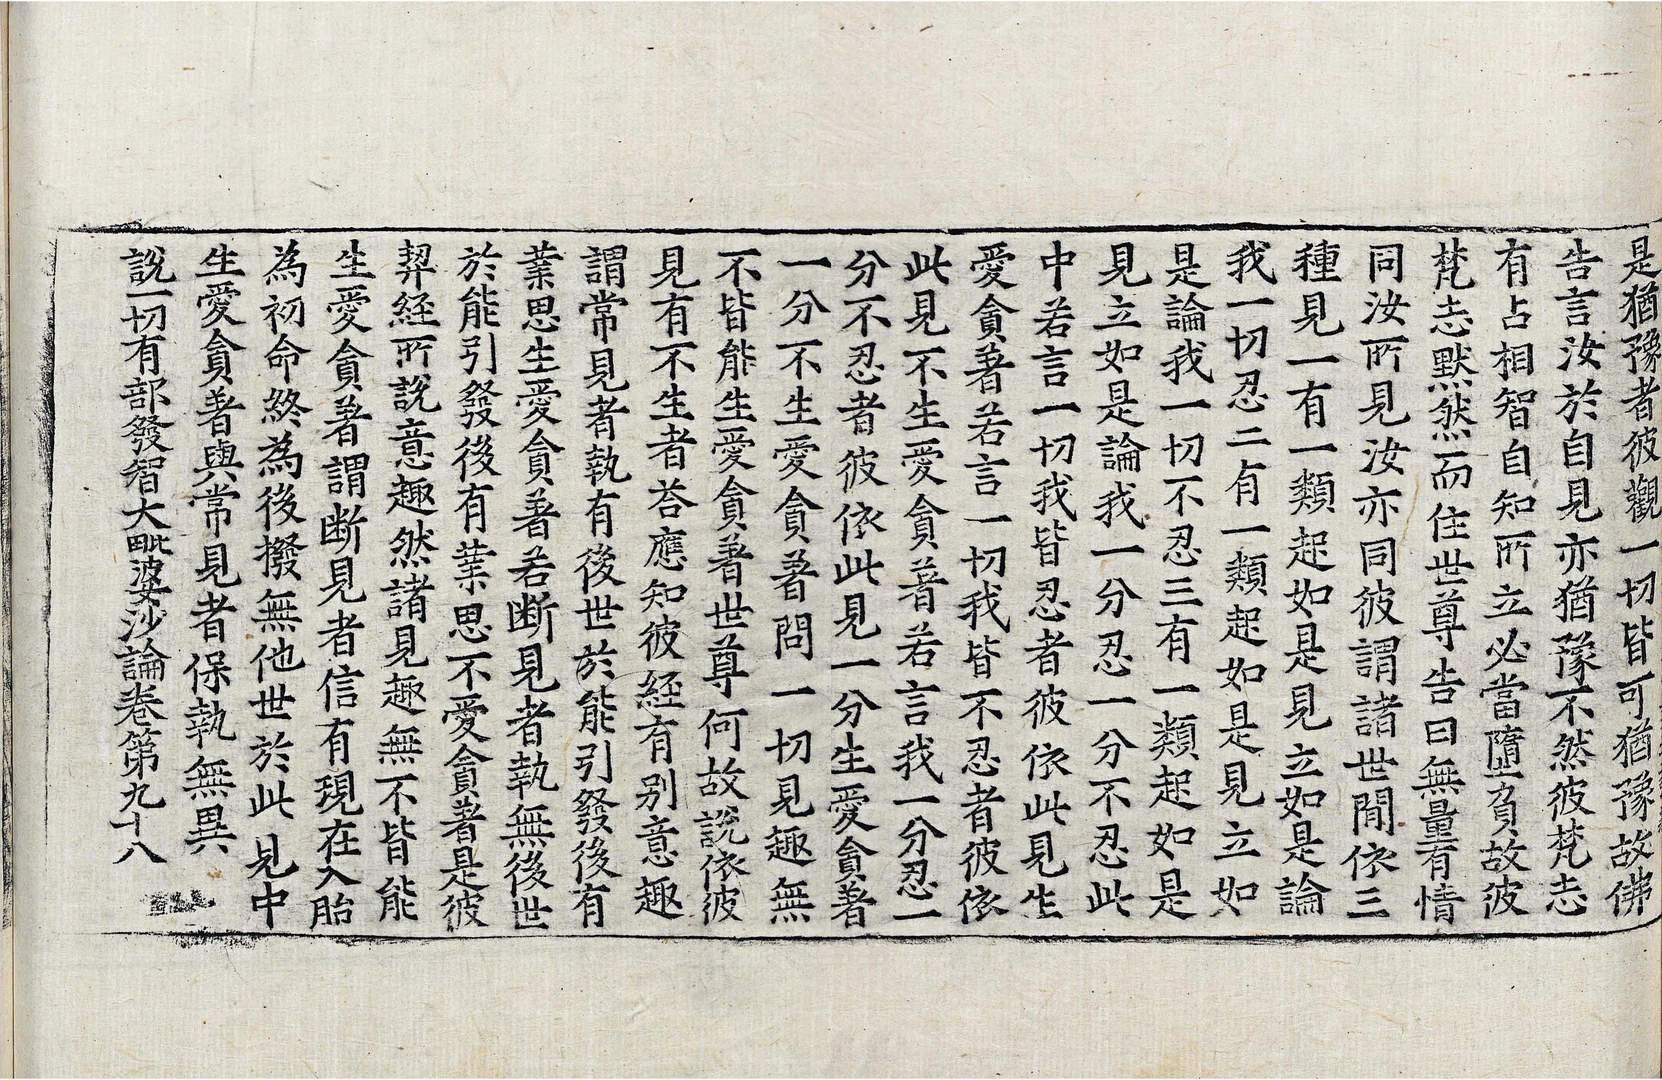 是猶豫者彼觀一切皆可猶豫故佛
告言汝於自見亦猶豫不然彼梵志
有占相智自知所立必當墮負故彼
梵志默然而住世尊告曰無量有情
同汝所見汝亦同彼謂諸世閒依三
種見一有一類起如是見立如是論
我一切忍二有一類起如是見立如
是論我一切不忍三有一類起如是
見立如是論我一分忍一分不忍此
中若言一切我皆忍者彼依此見生
愛貪著若言一切我皆不忍者彼依
此見不生愛貪著若言我一分忍一
分不忍者彼依此見一分生愛貪著
一分不生愛貪著問一切見趣無
不皆能生愛貪著世尊何故說依彼
見有不生者荅應知彼經有别意趣
謂常見者執有後世於能引發後有
業思生愛貪著若断見者執無後世
於能引發後有業思不愛貪著是彼
契經所說意趣然諸見趣無不皆能
生愛貪著謂断見者信有現在入胎
為初命終為後撥無他世於此見中
生愛貪著與常見者保執無異
說一切有部發智大毗婆沙論卷第九十八